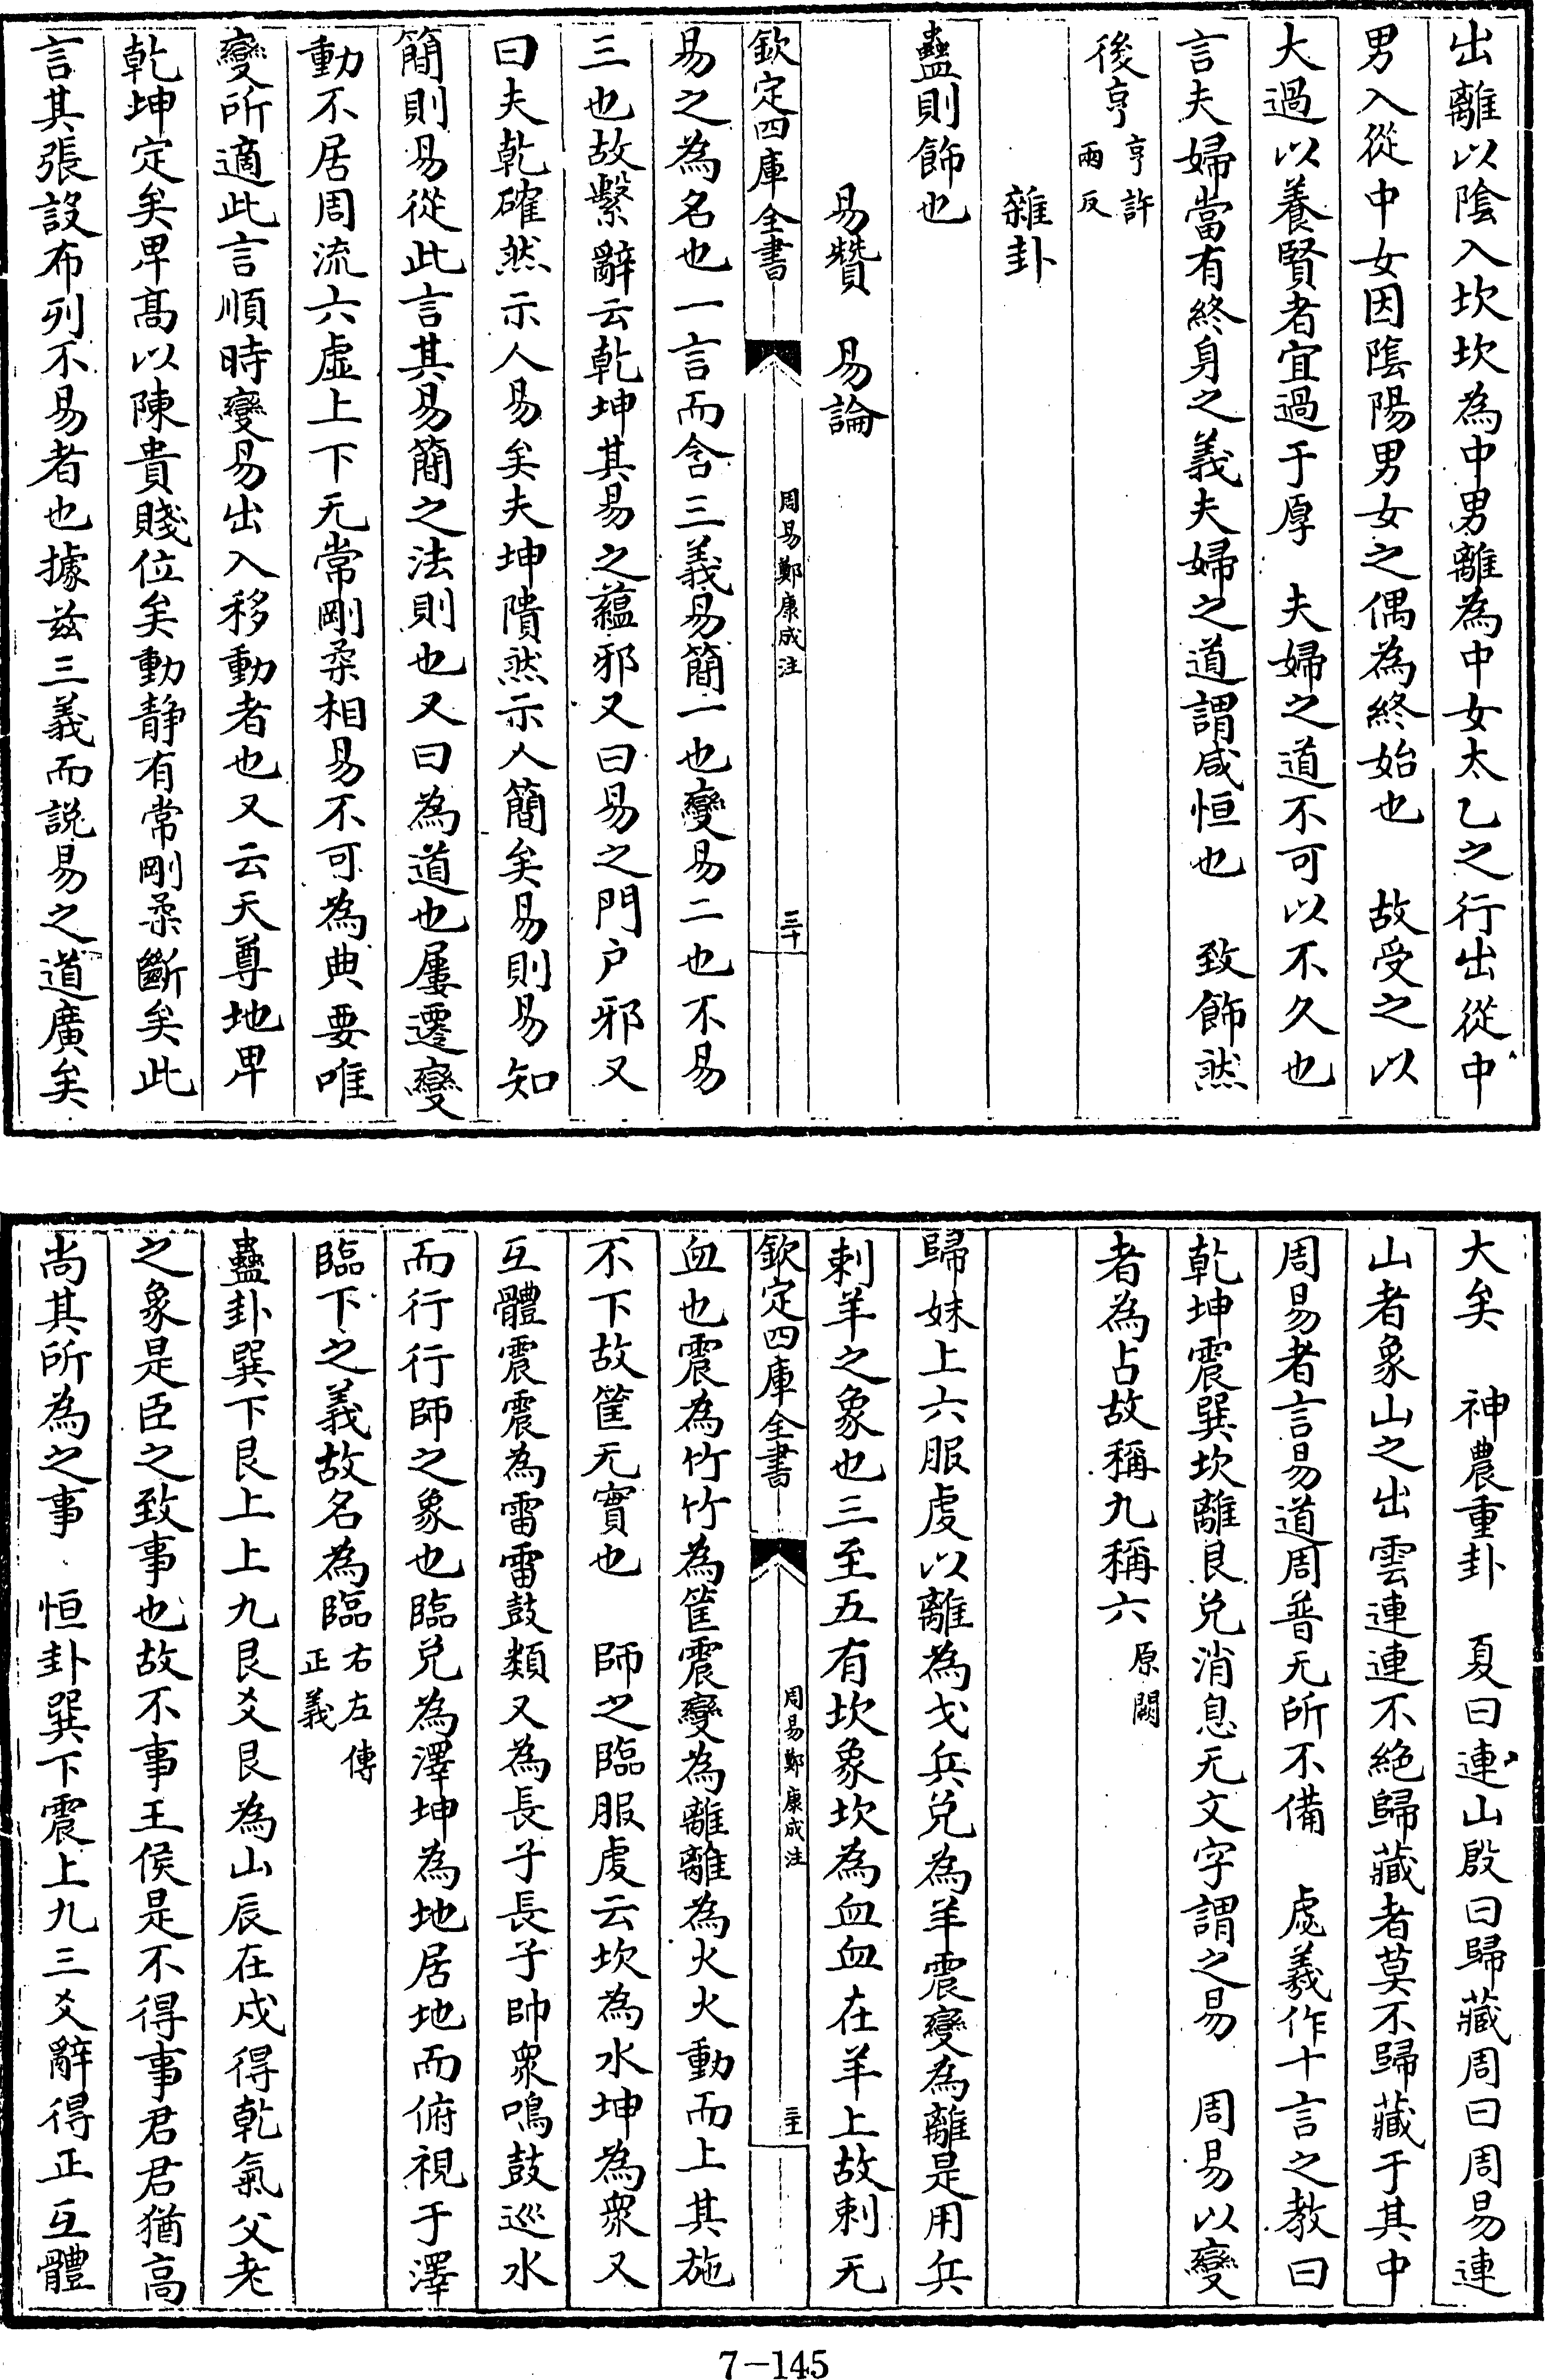 出離以陰入坎坎為中男離為中女太乙之行出從中
男入從中女因陰陽男女之偶為終始也　故受之以
大過以養賢者宜過于厚　夫婦之道不可以不久也
言夫婦當有終身之義夫婦之道謂咸恒也　致飾然
後亨亨許
兩反
雜卦
蠱則飾也
易贊　易論
欽定四庫全書
周易鄭康成注
三十
易之為名也一言而含三義易簡一也變易二也不易
三也故繫辭云乾坤其易之蘊邪又曰易之門户邪又
曰夫乾確然示人易矣夫坤隤然示人簡矣易則易知
簡則易從此言其易簡之法則也又曰為道也屢遷變
動不居周流六虛上下无常剛柔相易不可為典要唯
變所適此言順時變易出入移動者也又云天尊地卑
乾坤定矣卑髙以陳貴賤位矣動静有常剛柔斷矣此
言其張設布列不易者也據兹三義而説易之道廣矣
大矣　神農重卦　夏曰連山殷曰歸藏周曰周易連
山者象山之出雲連連不絶歸藏者莫不歸藏于其中
周易者言易道周普无所不備　虙羲作十言之教曰
乾坤震巽坎離艮兑消息无文字謂之易　周易以變
者為占故稱九稱六原闕
歸妹上六服虔以離為戈兵兑為羊震變為離是用兵
刺羊之象也三至五有坎象坎為血血在羊上故刺无
欽定四庫全書
周易鄭康成注
三十一
血也震為竹竹為筐震變為離離為火火動而上其施
不下故筐无實也　師之臨服虔云坎為水坤為衆又
互體震震為雷雷鼓類又為長子長子帥衆鳴鼓巡水
而行行師之象也臨兑為澤坤為地居地而俯視于澤
臨下之義故名為臨右左傳
正義
蠱卦巽下艮上上九艮爻艮為山辰在戌得乾氣父老
之象是臣之致事也故不事王侯是不得事君君猶高
尚其所為之事　恒卦巽下震上九三爻辭得正互體
7-145